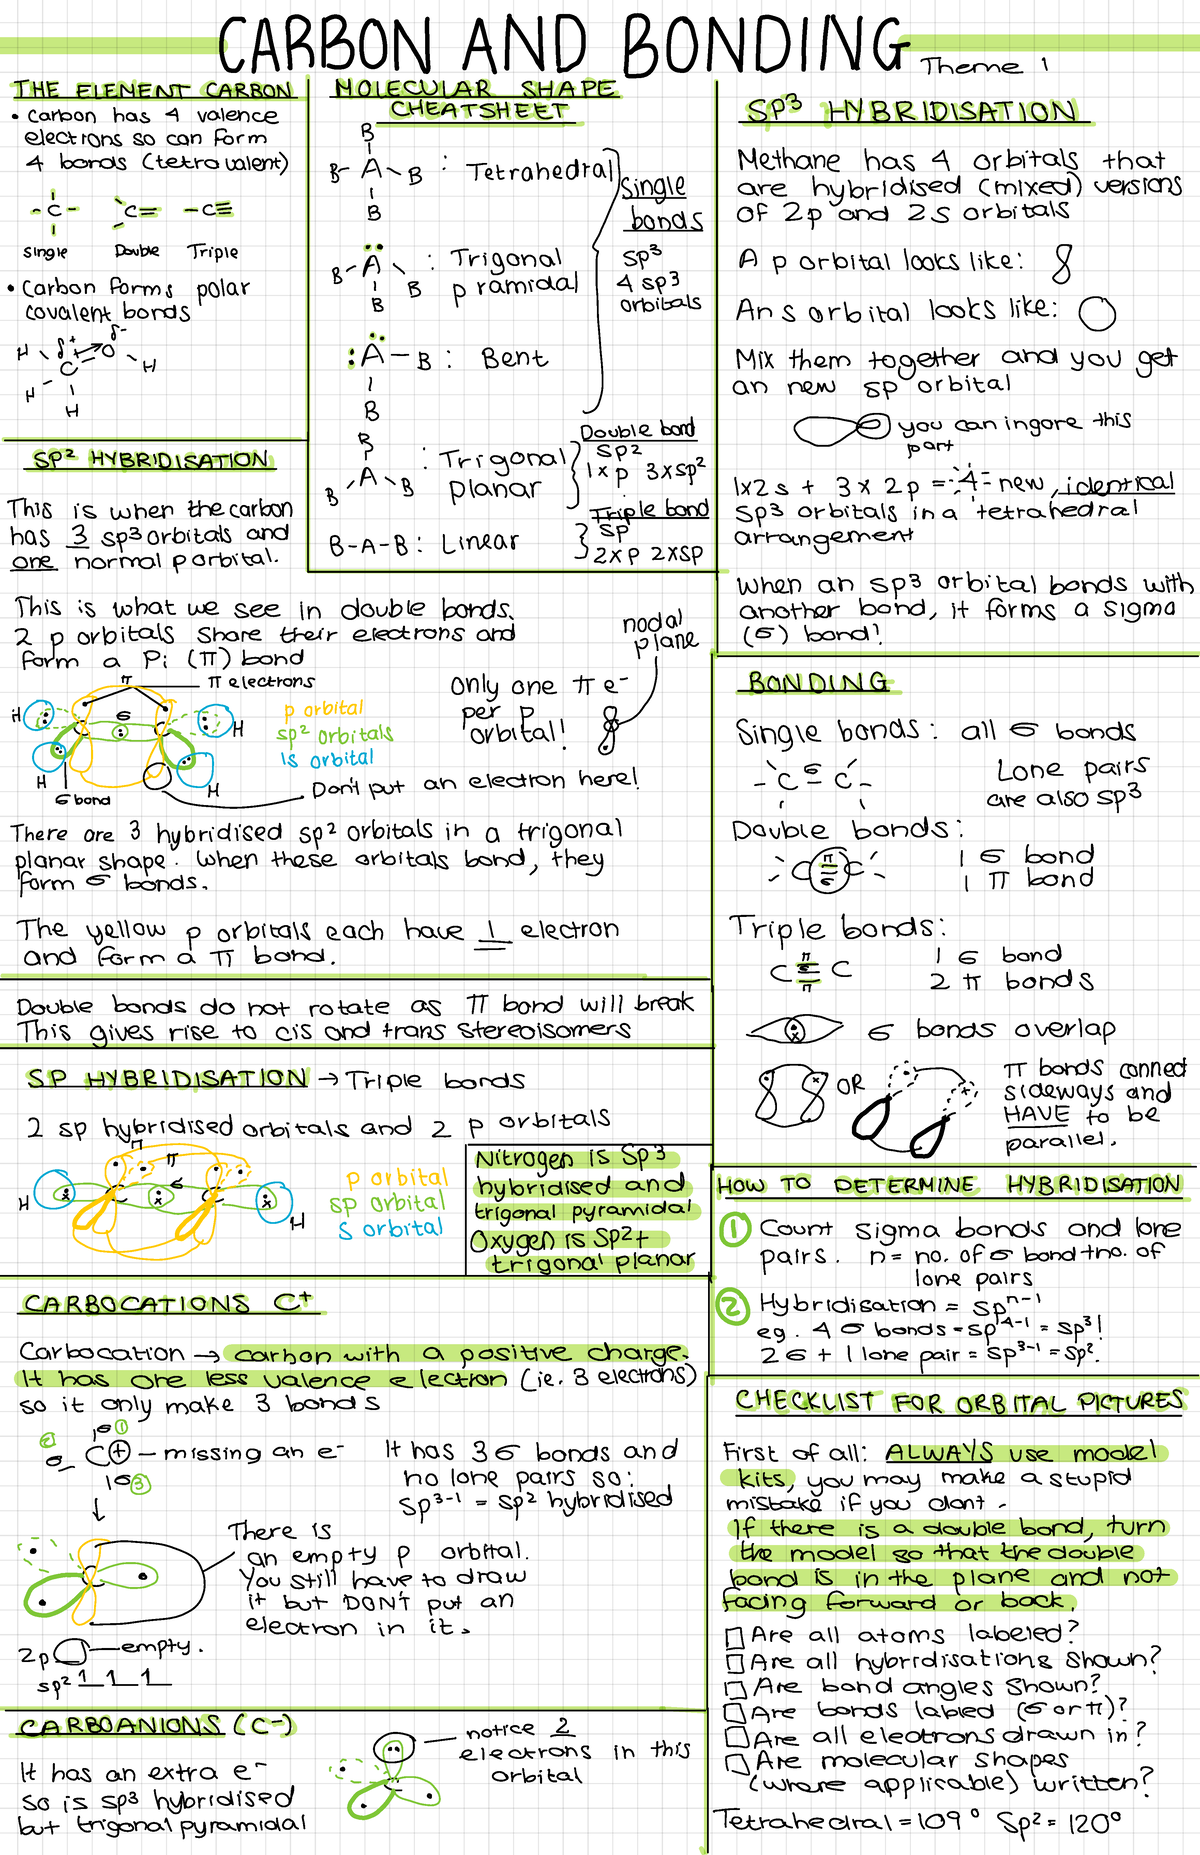 CARBON AND BONDING
Theme 1
THE ELEMENT CARBON
• Carbon has 4 valence
electrons so can form
4 bonds (tetravalent)
-C- C= -C≡
Single Double Triple
• Carbon forms polar
covalent bonds
H δ+ δ- O
C H
H
H
MOLECULAR SHAPE
CHEATSHEET
B
B-A-B : Tetrahedral
B
B-A B : Trigonal
B pramidal
:A-B : Bent
B
Single
bonds
sp3
4 sp3
orbitals
B
B-A-B : Trigonal
planar
Double bond
sp2
1xp 3xsp2
B-A-B : Linear
Triple bond
sp
2xp 2xsp
SP3 HYBRIDISATION
Methane has 4 orbitals that
are hybridised (mixed) versions
of 2p and 2s orbitals
A p orbital looks like:
An s orbital looks like:
Mix them together and you get
an new sp orbital
you can ingore this
part
1x2s + 3x2p = 4 = new, identical
sp3 orbitals in a tetrahedral
arrangement
When an sp3 orbital bonds with
another bond, it forms a sigma
(σ) bond!
SP2 HYBRIDISATION
This is when the carbon
has 3 sp3 orbitals and
one normal p orbital.
This is what we see in double bonds.
2 p orbitals share their electrons and
form a Pi (π) bond
π π electrons
H σ H
H H
σ bond
p orbital
sp2 orbitals
1s orbital
Only one π e-
per p
orbital!
nodal
plane
Don't put an electron here!
There are 3 hybridised sp2 orbitals in a trigonal
planar shape. When these orbitals bond, they
form σ bonds.
The yellow p orbitals each have 1 electron
and form a π bond.
Double bonds do not rotate as π bond will break
This gives rise to cis and trans stereoisomers
BONDING
Single bonds: all σ bonds
-C σ C-
Lone pairs
are also sp3
Double bonds:
C π σ C
1 σ bond
1 π bond
Triple bonds:
C π σ π C
1 σ bond
2 π bonds
σ bonds overlap
OR
π bonds conned
sideways and
HAVE to be
parallel.
SP HYBRIDISATION → Triple bonds
2 sp hybridised orbitals and 2 p orbitals
π π
H σ H
p orbital
sp orbital
s orbital
Nitrogen is Sp3
hybridised and
trigonal pyramidal
Oxygen is Sp2+
trigonal planar
HOW TO DETERMINE HYBRIDISATION
1 Count sigma bonds and lone
pairs. n = no. of σ bond + no. of
lone pairs
2 Hybridisation = sp n-1
eg. 4 σ bonds = sp4-1 = sp3!
2σ + 1 lone pair = sp3-1 = sp2.
CARBOCATIONS C+
Carbocation → carbon with a positive charge.
It has one less valence electron (ie. 3 electrons)
so it only make 3 bonds
1σ 1
2 σ- C+ - missing an e-
1σ 3
It has 3σ bonds and
no lone pairs so:
sp3-1 = sp2 hybridised
There is
an empty p orbital.
You still have to draw
it but DON'T put an
electron in it.
2p empty.
sp2 1 1 1
CARBOANIONS (C-)
It has an extra e-
so is sp3 hybridised
but trigonal pyramidal
notice 2
electrons in this
orbital
CHECKLIST FOR ORBITAL PICTURES
First of all: ALWAYS use model
kits, you may make a stupid
mistake if you dont.
If there is a double bond, turn
the model so that the double
bond is in the plane and not
facing forward or back.
Are all atoms labeled?
Are all hybridisations shown?
Are bond angles shown?
Are bonds labled (σ or π)?
Are all electrons drawn in?
Are molecular shapes
(where applicable) written?
Tetrahedral = 109° Sp2 = 120°